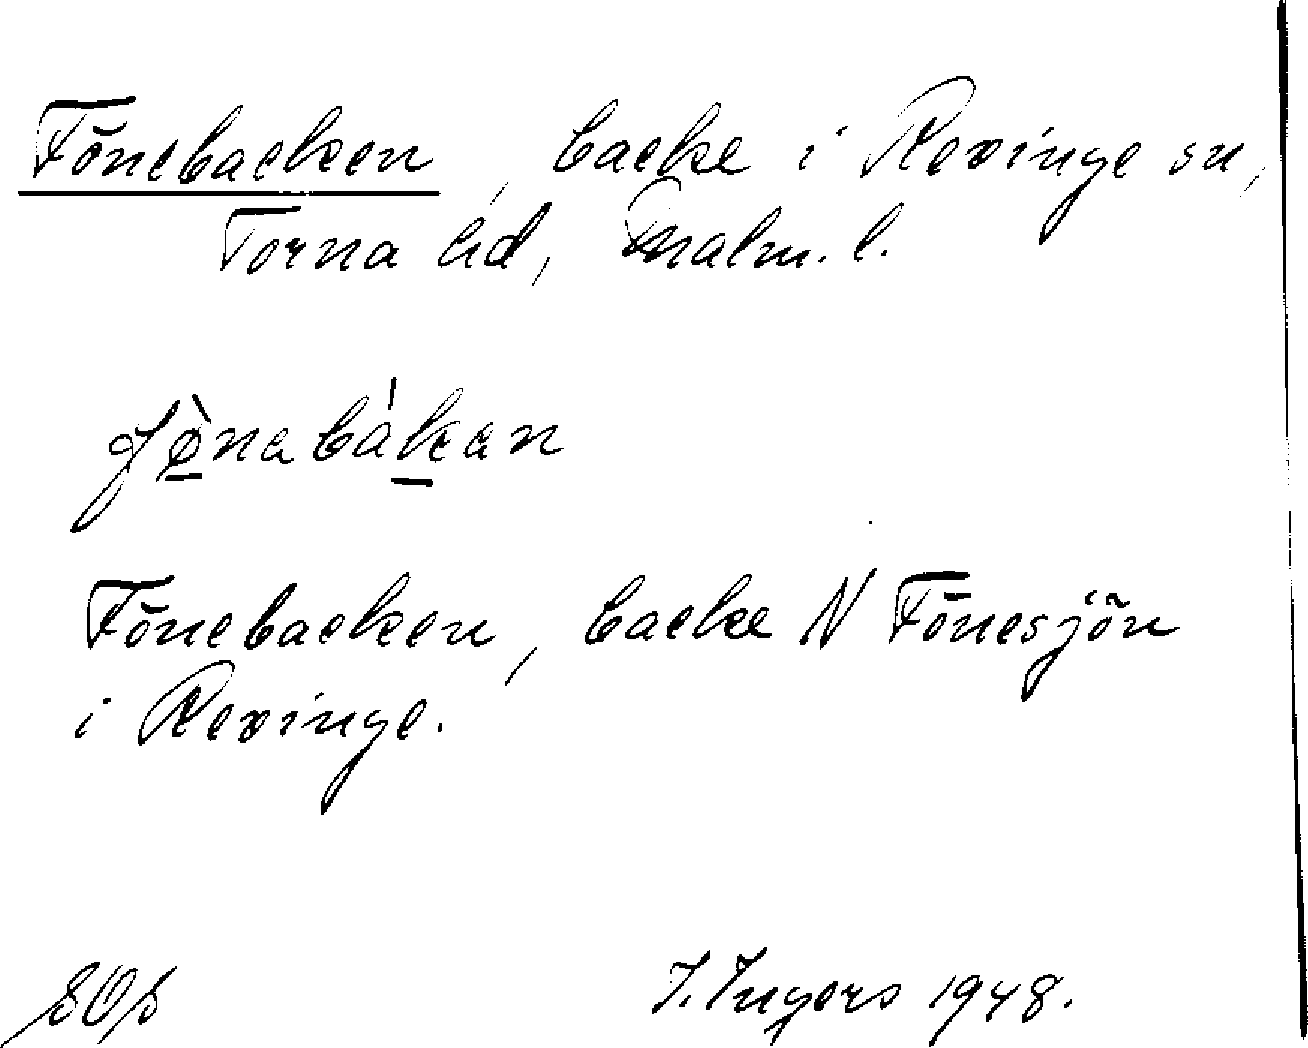 Fönebacken, backe i Revinge sn,
Torna hd, Malm. l.
fø̱̀nabák̠an
Fönebacken, backe N Fönesjön
i Revinge.
I. Ingers 1948.